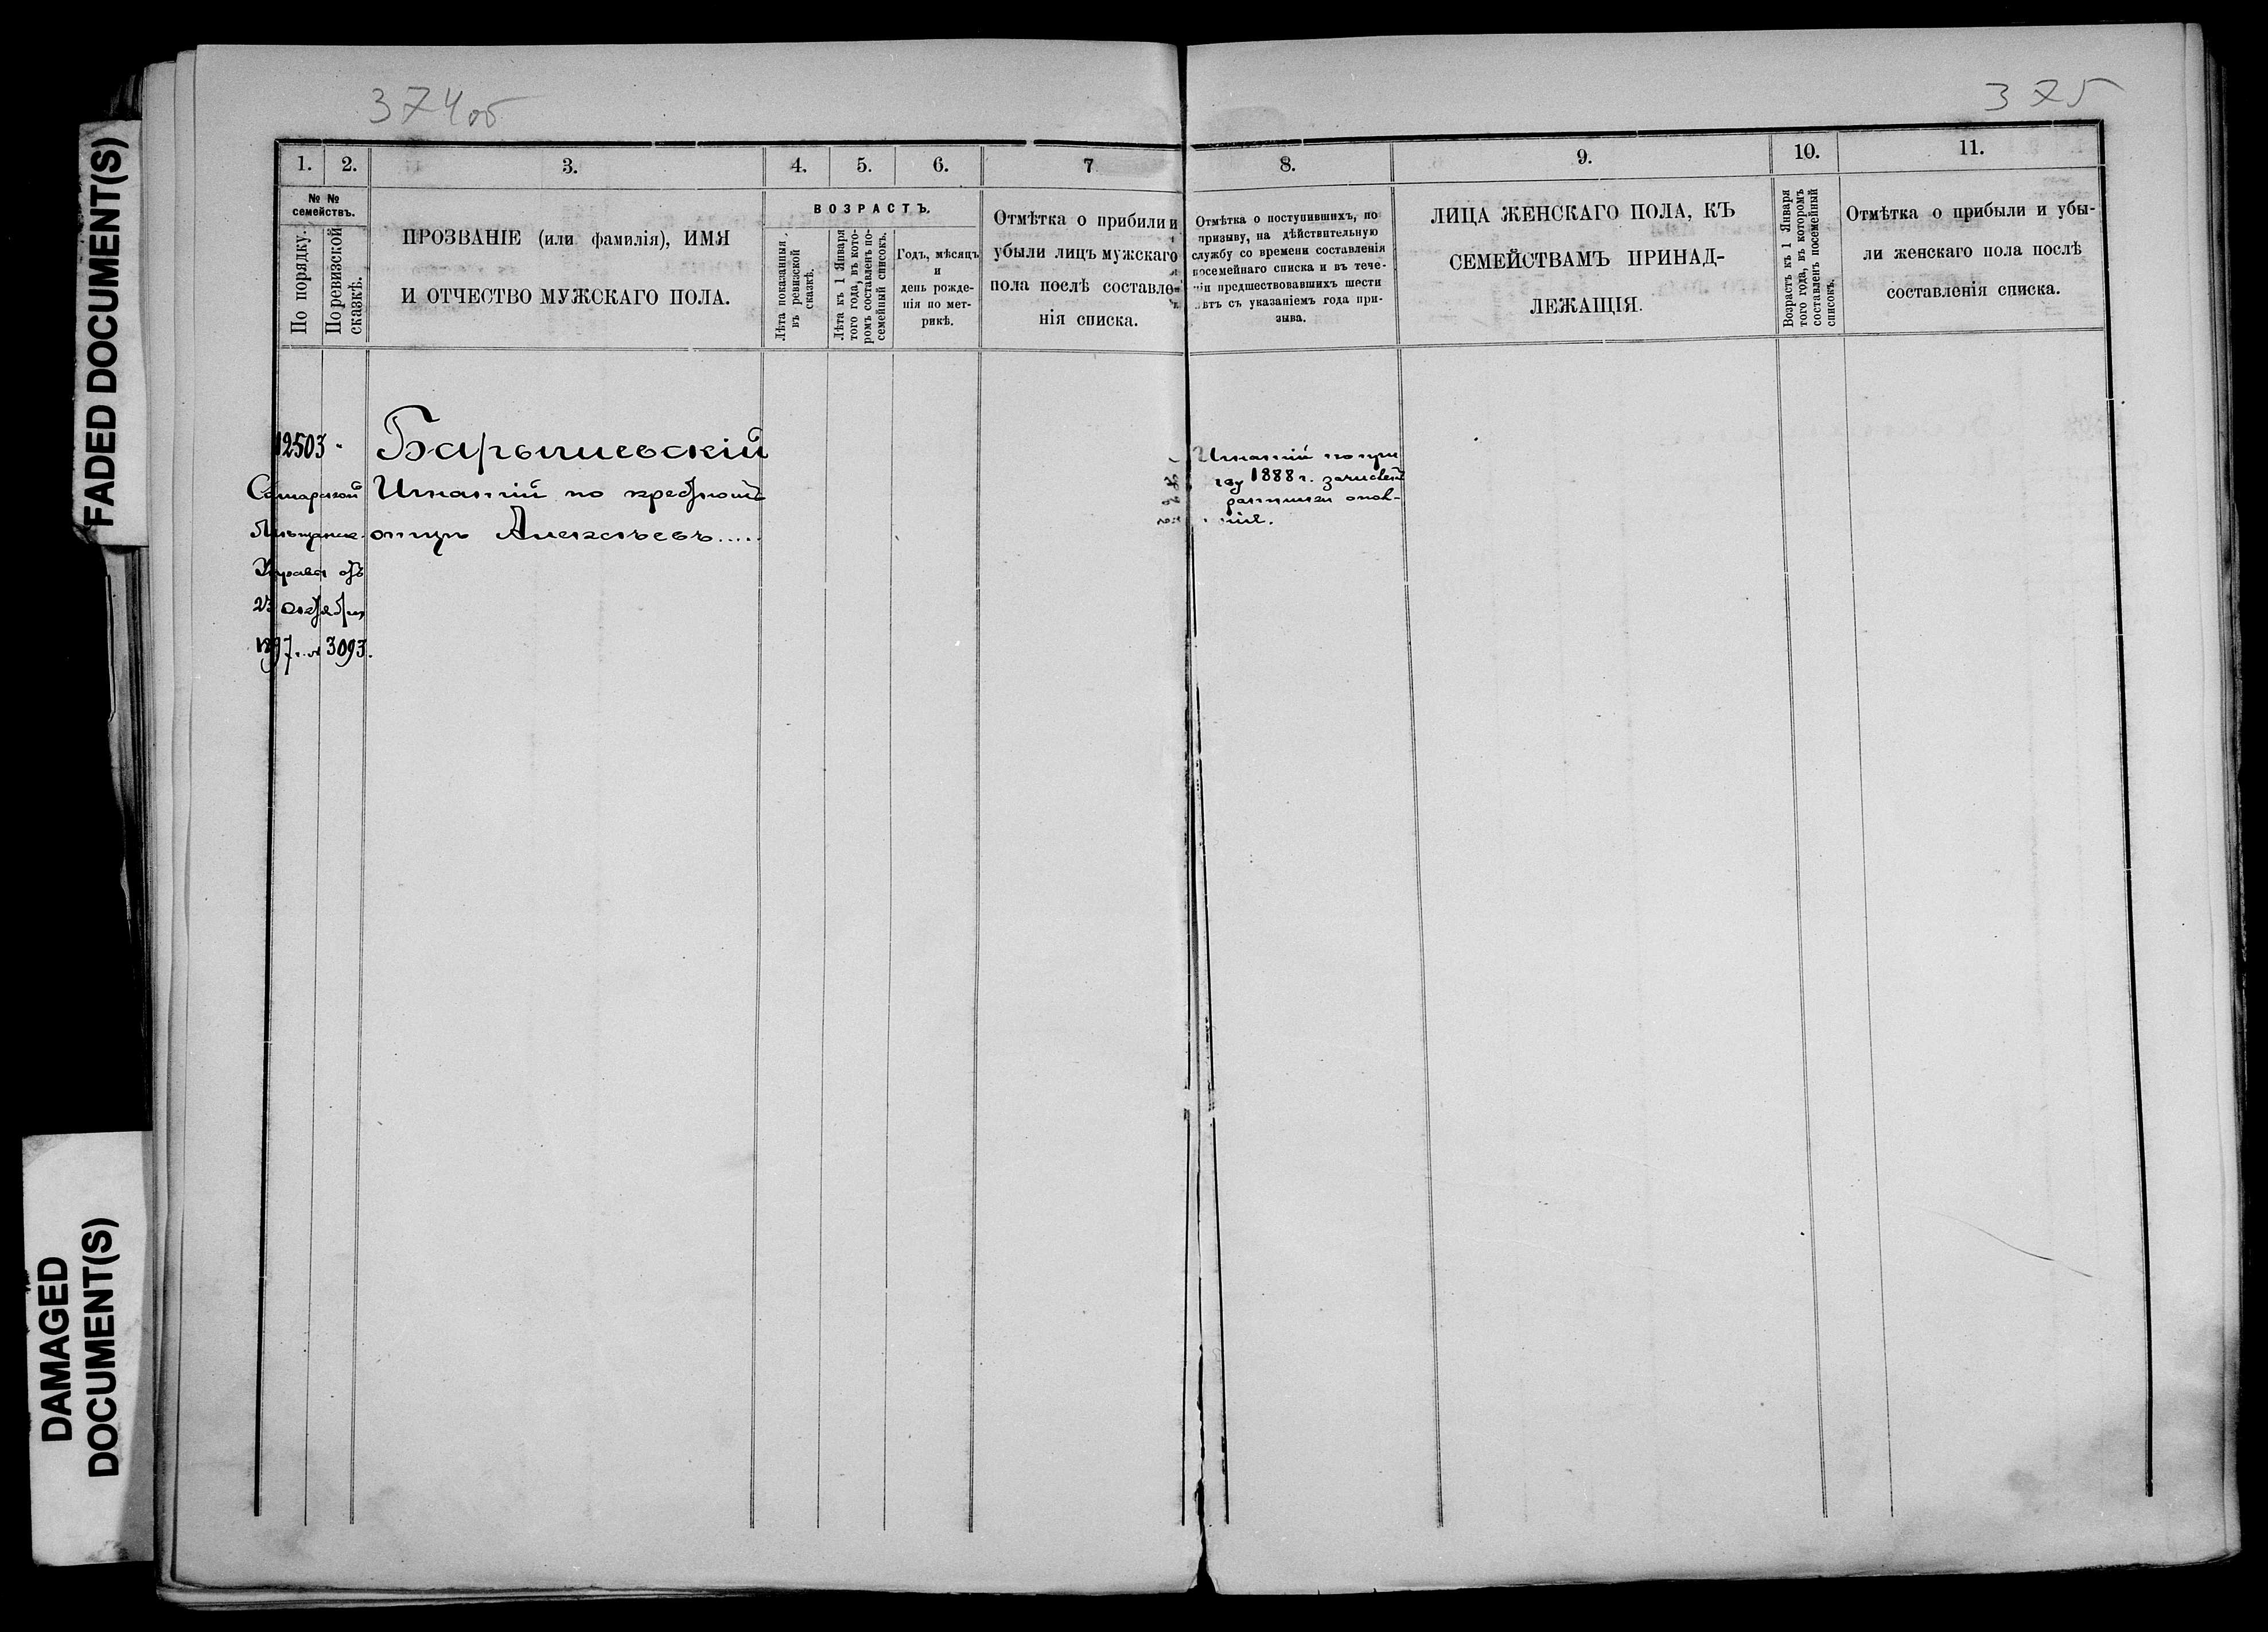 374об
375
FADED DOCUMENT(S)
DAMAGED
DOCUMENT(S)
1.
2.
3.
4.
5.
6.
7
8.
9.
10.
11.
№ №
семействъ.
По порядку.
По ревизской
сказкѣ.
ПРОЗВАНІЕ (или фамилія), ИМЯ
И ОТЧЕСТВО МУЖСКАГО ПОЛА.
ВОЗРАСТЪ.
Лѣта показанныя
въ ревизской
сказкѣ.
Лѣта къ 1 Января
того года, въ кото-
ромъ составленъ по-
семейный списокъ.
Годъ, мѣсяцъ
и
день рожде-
нія по мет-
рикѣ.
Отмѣтка о прибили и
убыли лицъ мужскаго
пола послѣ составле-
нія списка.
Отмѣтка о поступившихъ, по
призыву, на дѣйствительную
службу со времени составленія
посемейнаго списка и въ тече-
ніи предшествовавшихъ шести
лѣтъ съ указаніемъ года при-
зыва.
ЛИЦА ЖЕНСКАГО ПОЛА, КЪ
СЕМЕЙСТВАМЪ ПРИНАД-
ЛЕЖАЩІЯ.
Возрастъ къ 1 Января
того года, въ которомъ
составленъ посемейный
списокъ.
Отмѣтка о прибыли и убы-
ли женскаго пола послѣ
составленія списка.
12503 "
Самарской
Управы отъ
23 октября
1897 г. № 3093.
Барышевскій
Игнатій по крестному
отцу Алексѣевъ.....
Игнатій по при
1888 г. зачислен
ратники опол-